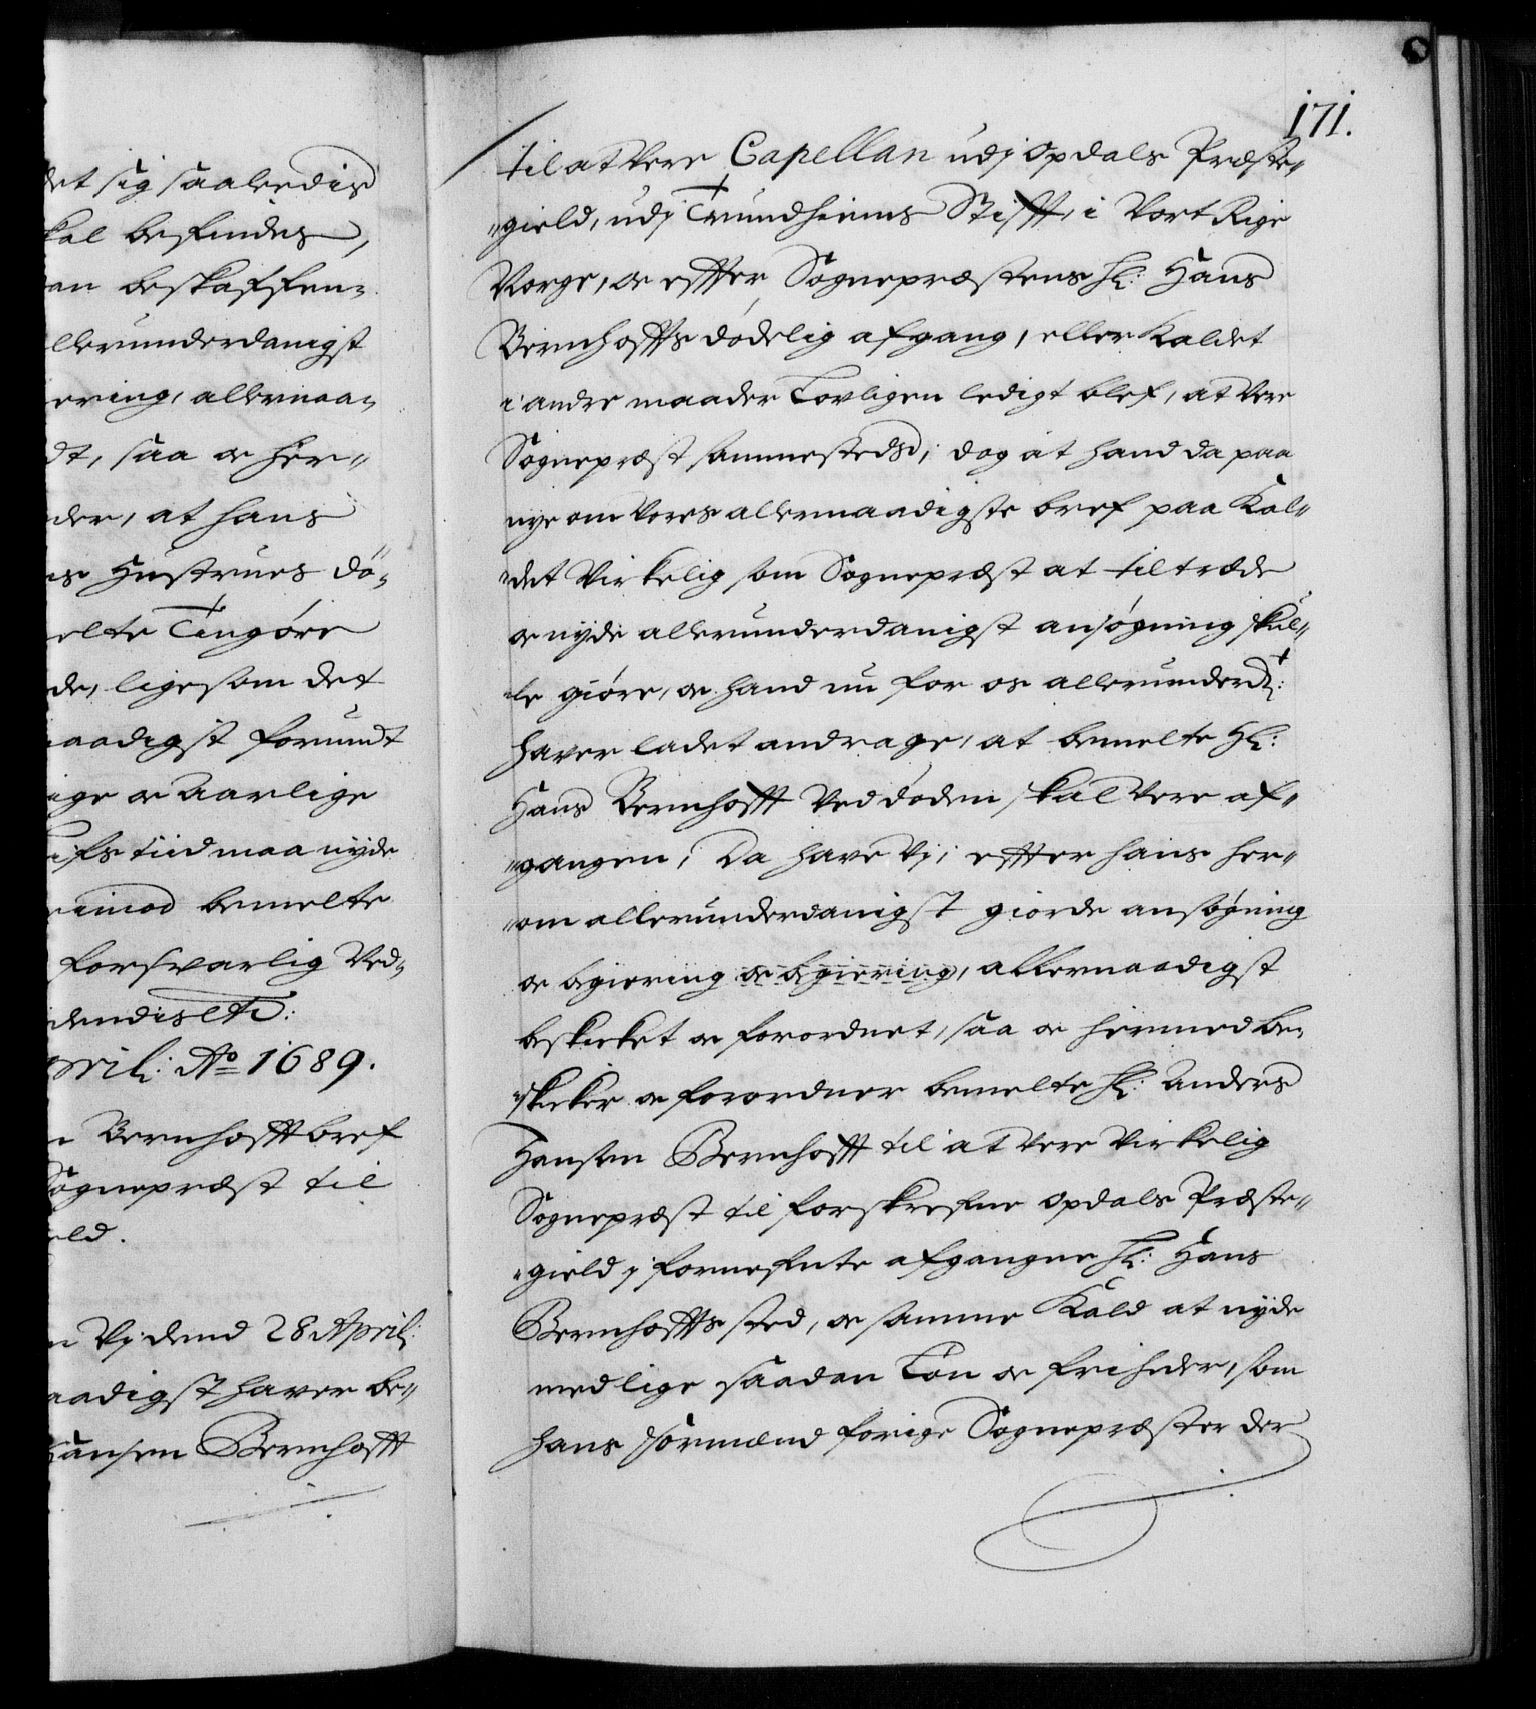 det sig saaledis
kal befindes,
an beskaffen-
llerunderdanigst
ering, allernaa-
dt, saa oc her-
der, at hans
Hustrues dö-
elte Tingöre
de, ligesom det
aadigst forundt
ige oc Aarlige
ifs tiid maa nyde
imod bemelte
forsvarlig Ved-
dendis etc:
pril: Ao 1689.
n Bernhofft bref
Sognepræst til
eld.
n Vj dend 28 April:
aadigst haver be-
Hansen Bernhofft
171.
til at vere Capellan udj Opdals Præste-
gield, udj Trundhiems Stifft, i Vort Rige
Norge, oc effter Sognepræstens Hr: Hans
Bernhoffts dödelig afgang, eller Kaldet
i andre maader Lovligen ledigt blef, at vere
Sognepræst sammesteds, dog at hand da paa
nye om Vores allernaadigste bref paa Kal-
det Virkelig som Sognepræst at tiltræde
oc nyde allerunderdanigst ansögning skul-
le giöre, oc hand nu for os allerunderdt:
haver ladet andrage, at bemelte Hr:
Hans Bernhofft Ved döden skal vere af-
gangen, Da have Vj, effter hans her-
om allerunderdanigst giorde ansögning
oc begiering oc begiering, allernaadigst
beskicket oc forordnet, saa oc hermed be-
skicker oc forordner bemelte Hr: Anders
Hansen Bernhofft til at vere Virkelig
Sognepræst til forskrefne Opdals Præste-
gield j fornefnte afgangne Hr: Hans
Bernhoffts sted, oc samme Kald at nyde
med lige saadan Lön oc friheder, som
hans formænd forige Sognepræster der